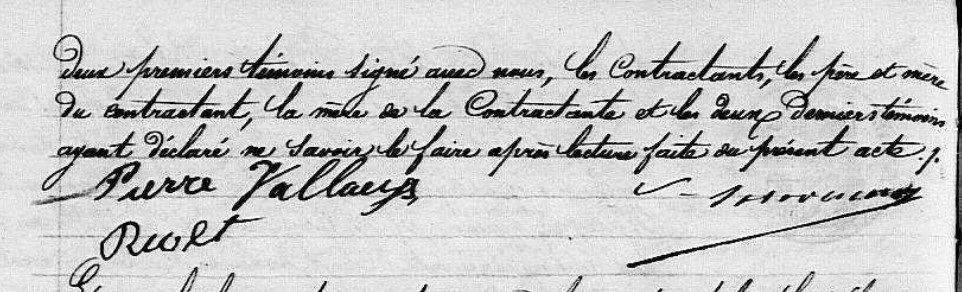 deux premiers témoins signé avec nous, les Contractants, les père et mère
du contractant, la mère de la Contractante et les deux derniers témoins
ayant déclaré ne savoir le faire après lecture faite du présent acte ./.
Pierre Vallaeys